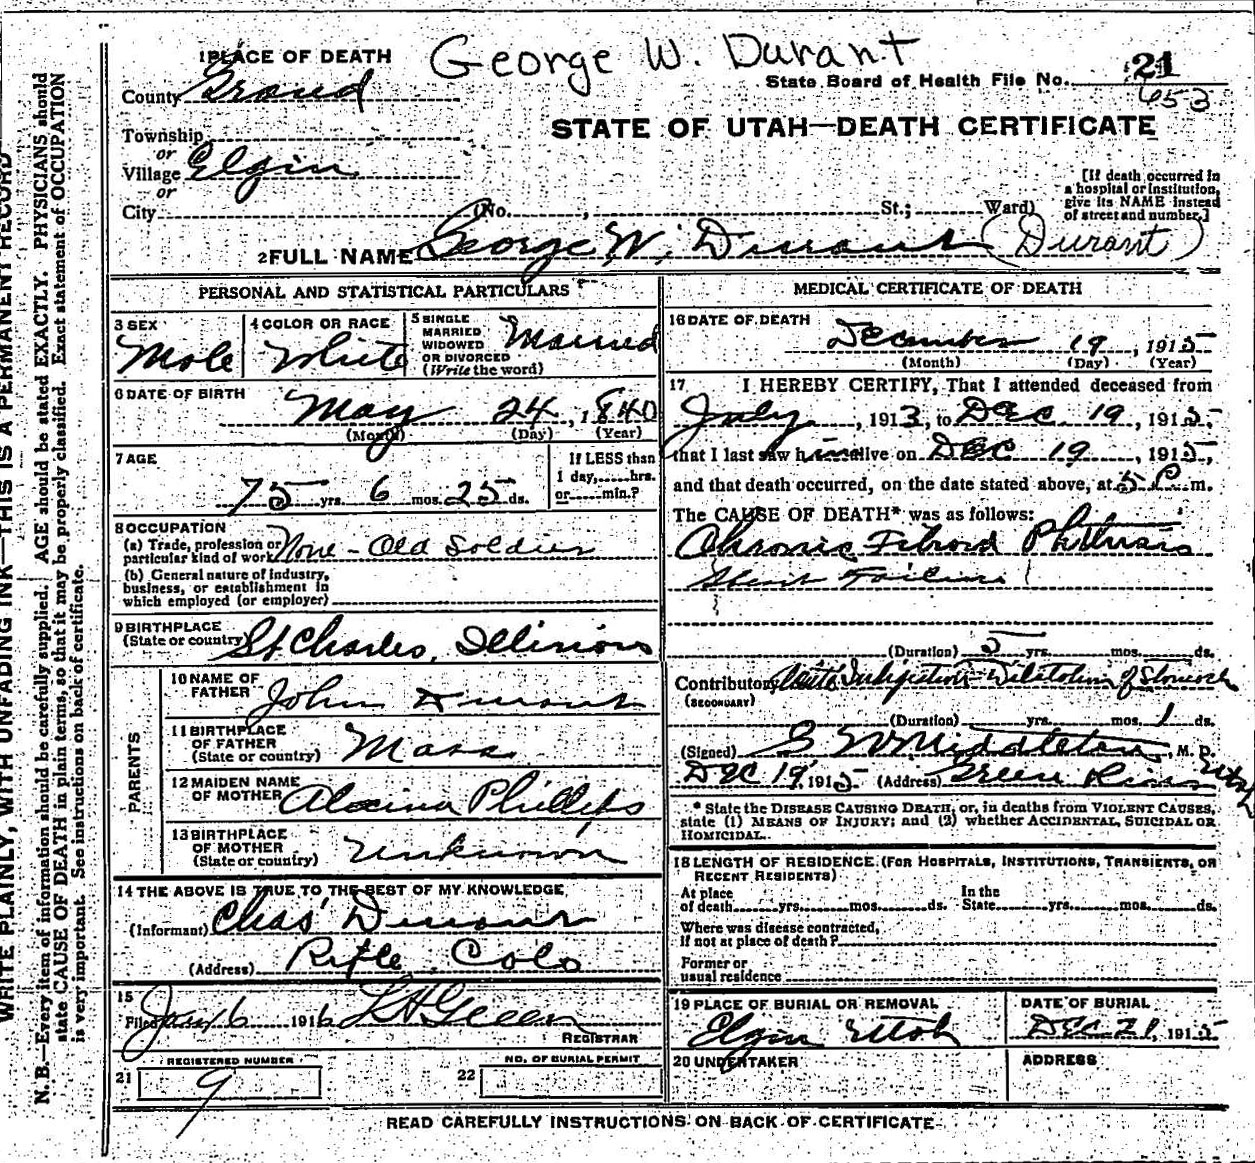 George W. Durant
1 PLACE OF DEATH
State Board of Health File No. 21
653
County Grand
STATE OF UTAH—DEATH CERTIFICATE
Township
or
Village Elgin
or
City (No. , St.; Ward)
[If death occurred in
a hospital or institution,
give its NAME instead
of street and number.]
2 FULL NAME George W. Durant (Durant)
PERSONAL AND STATISTICAL PARTICULARS
3 SEX
Male
4 COLOR OR RACE
White
5 SINGLE
MARRIED
WIDOWED
OR DIVORCED
(Write the word)
Married
6 DATE OF BIRTH
May 24, 1840
(Month) (Day) (Year)
7 AGE
75 yrs. 6 mos. 25 ds.
If LESS than
1 day,......hrs.
or......min.?
8 OCCUPATION
(a) Trade, profession or
particular kind of work None - Old Soldier
(b) General nature of Industry,
business, or establishment in
which employed (or employer)
9 BIRTHPLACE
(State or country) St Charles, Illinious
PARENTS
10 NAME OF
FATHER John Durant
11 BIRTHPLACE
OF FATHER
(State or country) Mass
12 MAIDEN NAME
OF MOTHER Phillips
13 BIRTHPLACE
OF MOTHER
(State or country) Unknown
14 THE ABOVE IS TRUE TO THE BEST OF MY KNOWLEDGE
(Informant) Chas Durant
(Address) Rifle Colo
15
Filed Jany 6 1916
REGISTRAR
REGISTERED NUMBER
21 9
NO. OF BURIAL PERMIT
22
MEDICAL CERTIFICATE OF DEATH
16 DATE OF DEATH
December 19, 1915
(Month) (Day) (Year)
17 I HEREBY CERTIFY, That I attended deceased from
July, 1913, to Dec 19, 1915
that I last saw him alive on Dec 19, 1915,
and that death occurred, on the date stated above, at 5 P. m.
The CAUSE OF DEATH* was as follows:
Chronic Fibroid Phthisis
(Duration) 5 yrs. mos. ds.
Contributory Acute Indigestion - Dilatation of Stomach
(SECONDARY)
(Duration) yrs. mos. 1 ds.
(Signed) Middleton, M. D.
Dec 19, 1915 (Address) Green River Utah
* State the DISEASE CAUSING DEATH, or, in deaths from VIOLENT CAUSES,
state (1) MEANS OF INJURY; and (2) whether ACCIDENTAL, SUICIDAL OR
HOMICIDAL.
18 LENGTH OF RESIDENCE (FOR HOSPITALS, INSTITUTIONS, TRANSIENTS, OR
RECENT RESIDENTS)
At place
of death......yrs......mos......ds.
In the
State......yrs......mos......ds.
Where was disease contracted,
if not at place of death?
Former or
usual residence
19 PLACE OF BURIAL OR REMOVAL
Elgin Utah
DATE OF BURIAL
Dec 21, 1915
20 UNDERTAKER
ADDRESS
READ CAREFULLY INSTRUCTIONS ON BACK OF CERTIFICATE
WRITE PLAINLY, WITH UNFADING INK—THIS IS A PERMANENT RECORD
N. B.—Every item of information should be carefully supplied. AGE should be stated EXACTLY. PHYSICIANS should
state CAUSE OF DEATH in plain terms, so that it may be properly classified. Exact statement of OCCUPATION
is very important. See instructions on back of certificate.